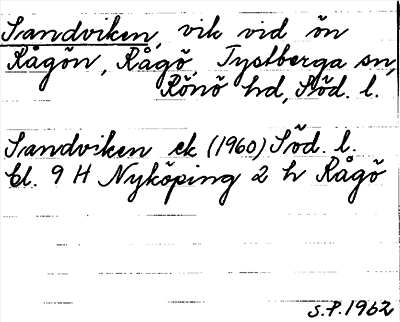 Sandviken, vik vid ön
Rågön, Rågö, Tystberga sn,
Rönö hd, Söd. l.
Sandviken ek (1960) Söd. l.
Bl. 9 H Nyköping 2 h Rågö
S.P. 1962